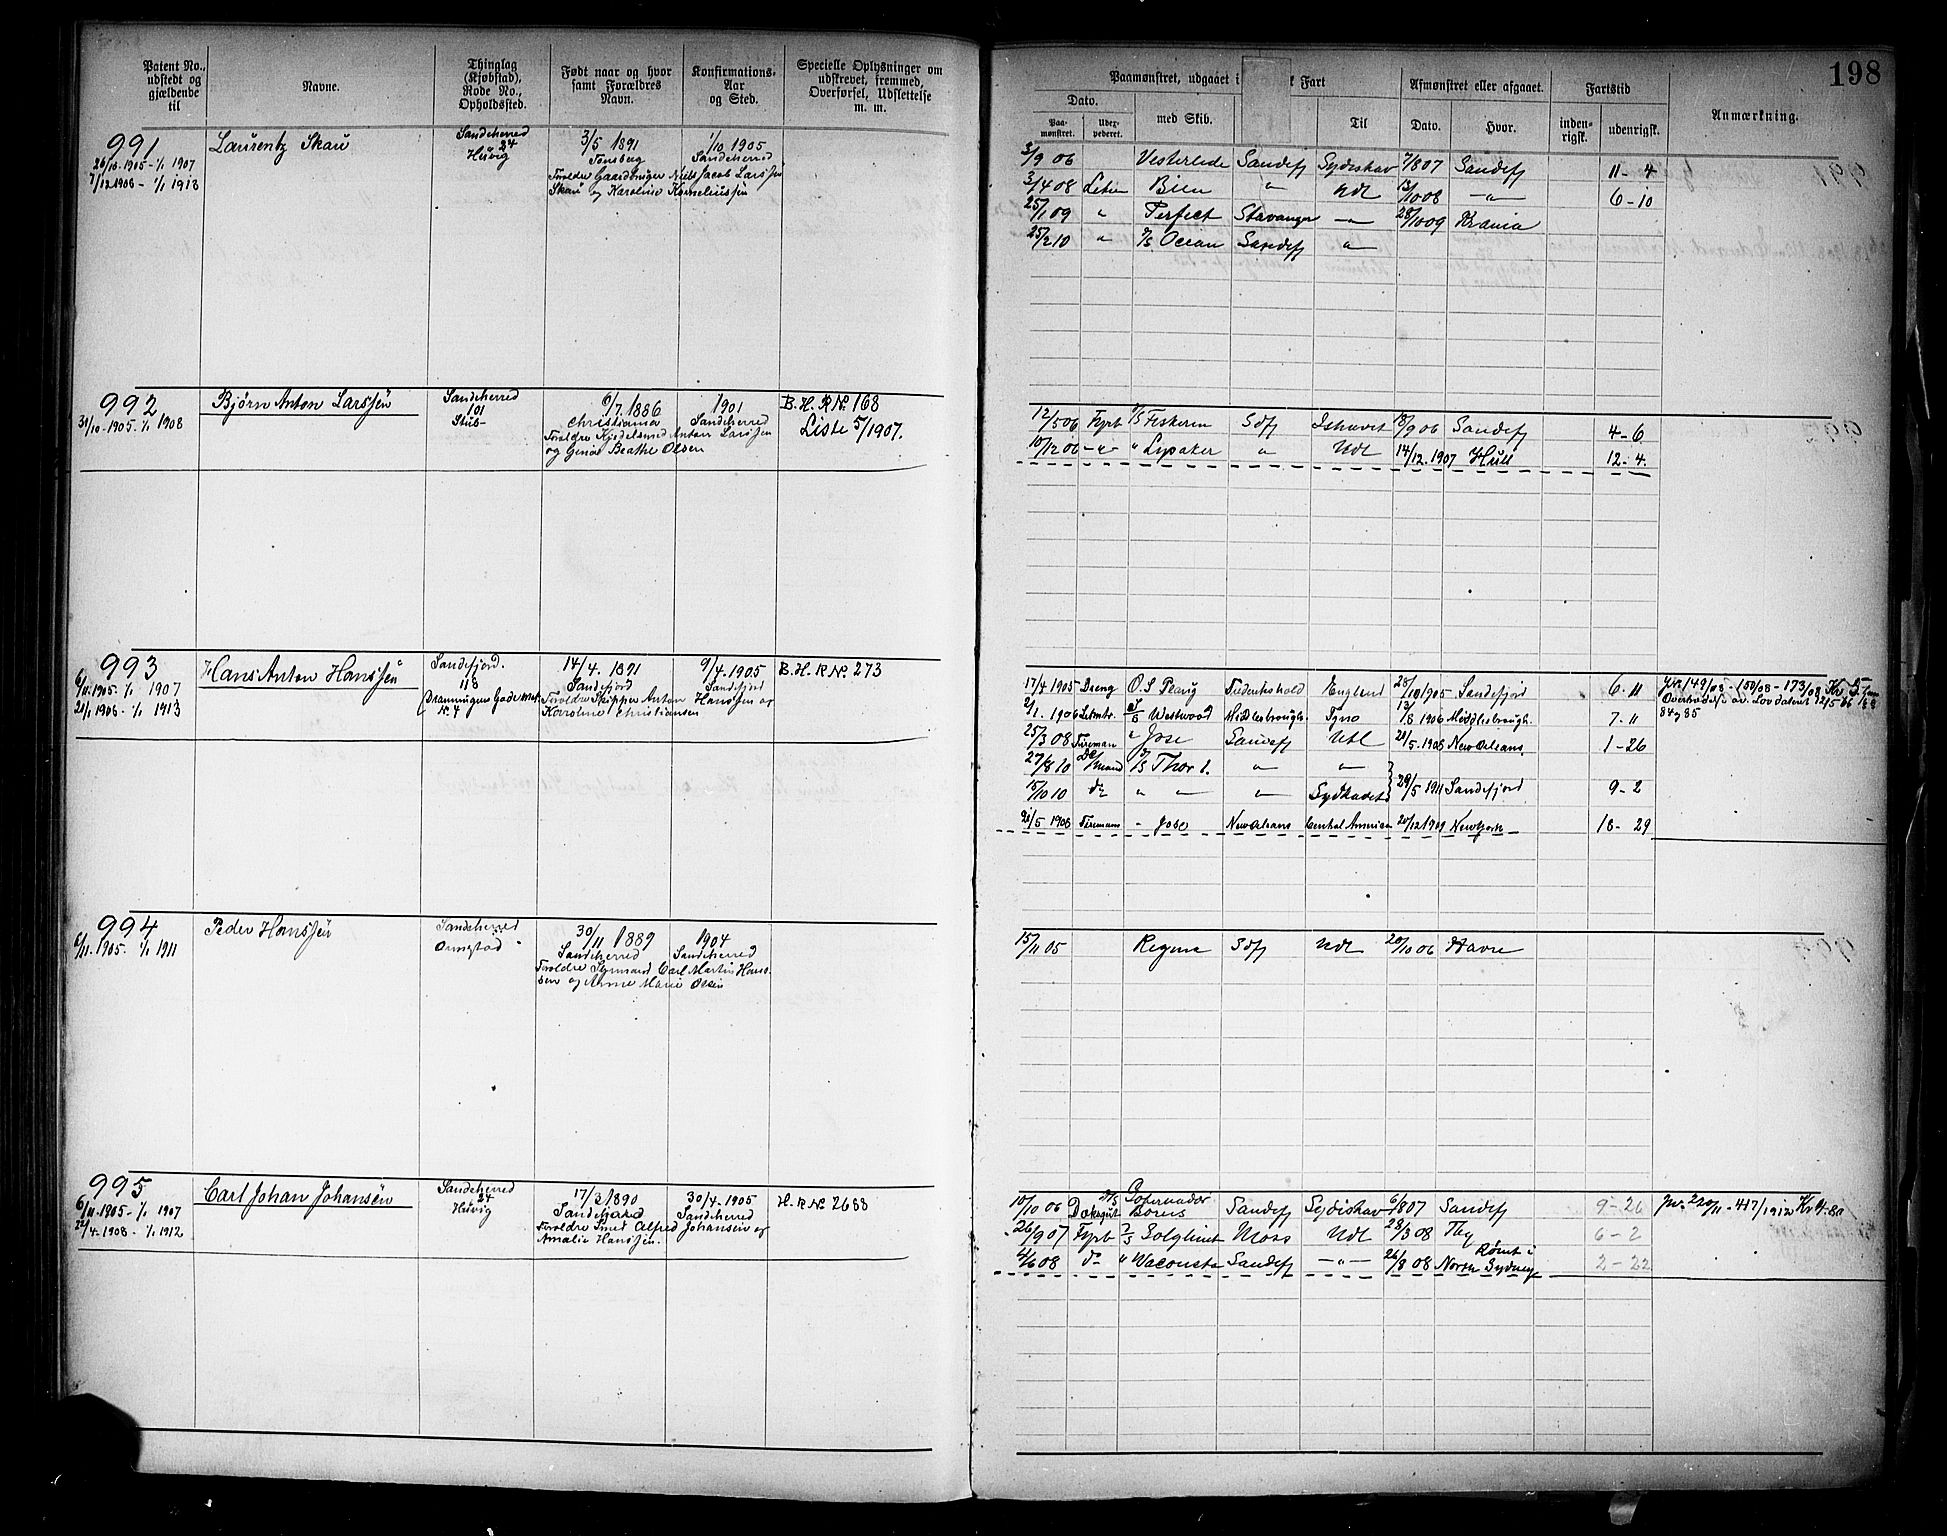 198
Patent No., udstedt og gjældende til
Navne.
Thinglag (Kjøbstad), Rode No., Opholdssted.
Født naar og hvor samt Forældres Navn.
Konfirmations-Aar og Sted.
Specielle Oplysninger om udskrevet, fremmed, Overførsel, Udslettelse m. m.
Paamønstret, udgaaet i Fart
Dato.
Paamønstret.
med Skib.
Til
Afmønstret eller afgaaet.
Dato.
Hvor.
Fartstid
indenrigsk.
udenrigsk.
Anmærkning.
991
26/10-1905-1/1 1907
7/12 1908-1/1 1913
Laurentz Skau
Sandeherred
24
Huvig
3/5 1891
Tønsberg
Foreldre Gaardbruger Niels Jacob Larssen
Skau og Karoline Korneliussen
1/10 1905
Sandeherred
3/9 06 Vesterlide Sandefj Sydishav 7/8 07 Sandefj 11-4
3/4 08 Bien " Udl 13/10 08 -"- 6-10
25/1 09 " Perfect Stavanger -"- 28/10 09 Krania
25/2 10 " Ocean Sandefj "
992
31/10-1905-1/1 1908
Bjørn Anton Larssen
Sandeherred
101
Stub-
6/7. 1886
Christiania
Foreldre Kjedelsmed Anton Larssen
og Gina Beathe Olsen
1901
Sandeherred
B. H. R No. 168
Liste 5/1907.
12/5 06 Fyrb Fiskeren Sdfj Ishavet 18/9 06 Sandefj 4-6
10/12 06 -"- " Lysaker " Udl 14/12. 1907 Hull 12-4.
993
6/11.1905-1/1 1907
21/1 1908-1/1 1913
Hans Anton Hanssen
Sandefjord.
118
Dronningens Gade
No. 4
14/4. 1891
Sandefjord
Foreldre Skipper Anton Hanssen og
Karoline Christiansen
9/4.1905
Sandefjord
B. H. R No. 273
17/4 1905 Dreng Frederikshald England 28/10 1905 Sandefjord 6-11
1906 Westwood Middlesbrough Tyne 13/8 1906 Middlesbrough 7-11
25/3 08 Fireman " Jose Sandefj Udl 21/5.1908 New Orleans 1-26
27/8 10 Thor 1. " "
15/10 10 do " " " 29/5 1911 Sandefjord 9-2
21/5 1908 Fireman " Jose New Orleans Central America 20/12 1909 New York 18-29
149/08 - 150/08 - 173/08
84 og 85
994
6/11.1905-1/1 1911
Peder Hanssen
Sandeherred
30/11 1889
Sandeherred
Foreldre Sømand Carl Martin Hans-
sen og Anne Marie Olsen
1904
Sandeherred
15/11 05 Regina Sdfj Udl 20/10 06 Havre
995
6/11-1905-1/1 1907
22/4.1908-1/1 1912
Carl Johan Johansen
Sandeherred
24
Huvig
17/3 1890
Sandeherred
Foreldre Smed Alfred Johansen og
Amalie Hanssen.
30/4.1905
Sandeherred
H. R No. 2688
10/10 06 Dæksgut Gobernador Bories Sandefj Sydishav 6/8 07 Sandefj 9-26
26/9 07 Fyrb Solglimt Moss Udl 28/3 08 6-2
4/6 08 do " Waconsta Sandefj -"- 26/8 08 Rømt i North Sydney 2-22